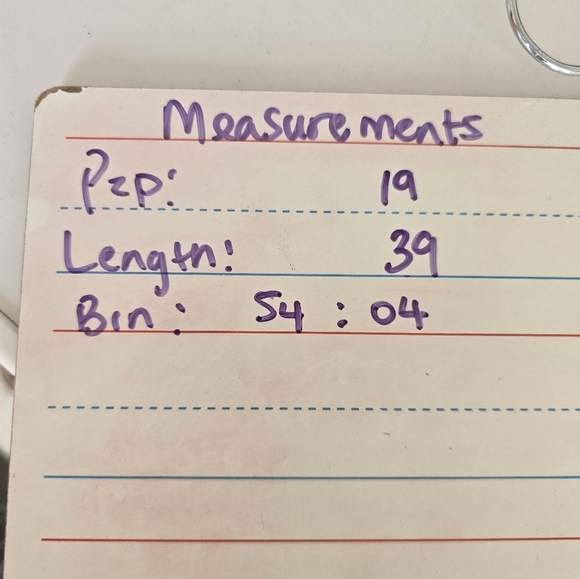 Measurements
P2P: 19
Length: 39
Bin: S4 : 04